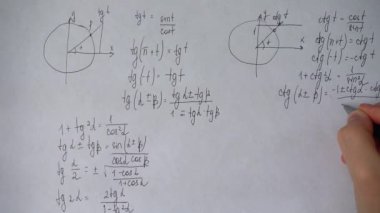 y
tg t
x
tg t = sin t / cos t
tg(π + t) = tg t
tg(-t) = -tg t
tg(α ± β) = tgα ± tgβ / 1 ∓ tgα tgβ
1 + tg²α = 1 / cos²α
tgα ± tgβ = sin(α ± β) / cosα cosβ
tg α/2 = ± √ 1 - cosα / 1 + cosα
tg 2α = 2tgα / 1 - tg²α
ctg t
x
ctg t = cos t / sin t
ctg(π + t) = ctg t
ctg(-t) = -ctg t
1 + ctg²α = 1 / sin²α
ctg(α ± β) = -1 ± ctgα · ctg